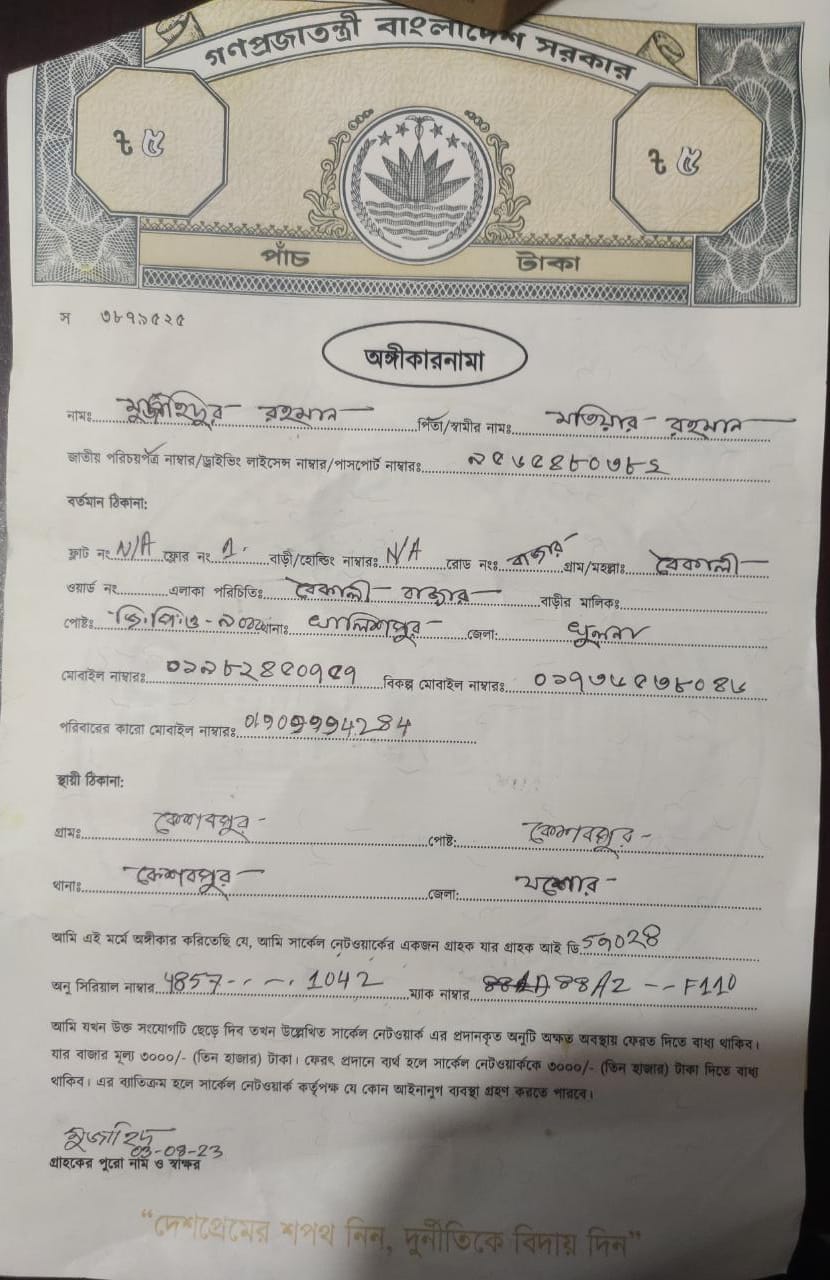 গণপ্রজাতন্ত্রী বাংলাদেশ সরকার
৳ ৫ ৳ ৫
পাঁচ টাকা
স ৩৮৭৯৫২৫
অঙ্গীকারনামা
নামঃ মুজাহিদুর রহমান পিতা/স্বামীর নামঃ মতিয়ার রহমান
জাতীয় পরিচয়পত্র নাম্বার/ড্রাইভিং লাইসেন্স নাম্বার/পাসপোর্ট নাম্বারঃ
বর্তমান ঠিকানা:
ফ্লাট নং N/A ফ্লোর নং 1. বাড়ী/হোল্ডিং নাম্বারঃ N/A রোড নংঃ বাজার গ্রাম/মহল্লাঃ বৈকালী
ওয়ার্ড নং এলাকা পরিচিতিঃ বৈকালী বাজার বাড়ীর মালিকঃ
পোষ্টঃ জি.পি.ও - ৯০০০ থানাঃ খালিশপুর জেলা: খুলনা
মোবাইল নাম্বারঃ বিকল্প মোবাইল নাম্বারঃ
পরিবারের কারো মোবাইল নাম্বারঃ
স্থায়ী ঠিকানা:
গ্রামঃ কেশবপুর - পোষ্ট: কেশবপুর -
থানাঃ কেশবপুর জেলা: যশোর -
আমি এই মর্মে অঙ্গীকার করিতেছি যে, আমি সার্কেল নেটওয়ার্কের একজন গ্রাহক যার গ্রাহক আই ডি
অনু সিরিয়াল নাম্বার 4857 - - - - 1042 ম্যাক নাম্বার 88A2 -- F110
আমি যখন উক্ত সংযোগটি ছেড়ে দিব তখন উল্লেখিত সার্কেল নেটওয়ার্ক এর প্রদানকৃত অনুটি অক্ষত অবস্থায় ফেরত দিতে বাধ্য থাকিব।
যার বাজার মূল্য ৩০০০/- (তিন হাজার) টাকা। ফেরৎ প্রদানে ব্যর্থ হলে সার্কেল নেটওয়ার্ককে ৩০০০/- (তিন হাজার) টাকা দিতে বাধ্য
থাকিব। এর ব্যতিক্রম হলে সার্কেল নেটওয়ার্ক কর্তৃপক্ষ যে কোন আইনানুগ ব্যবস্থা গ্রহণ করতে পারবে।
মুজাহিদ
03-08-23
গ্রাহকের পুরো নাম ও স্বাক্ষর
“দেশপ্রেমের শপথ নিন, দুর্নীতিকে বিদায় দিন”